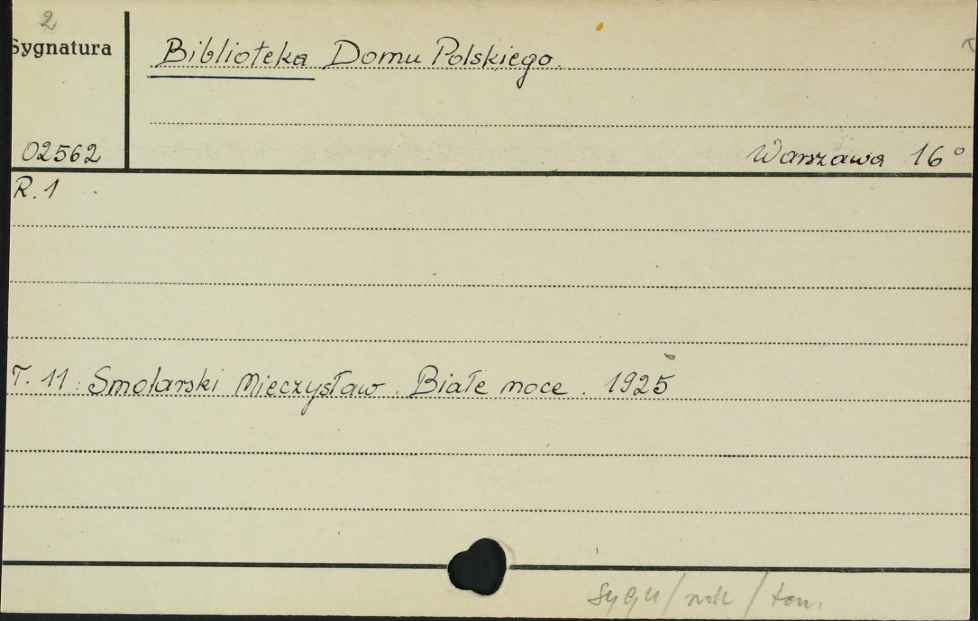 2
Sygnatura
Biblioteka Domu Polskiego.
02562
Warszawa 16°
R. 1
T. 11: Smolarski Mieczysław. Białe noce. 1925
Sygn/rok/tom.